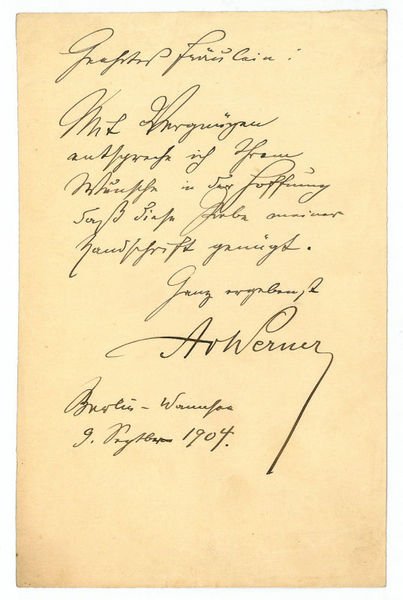 Geehrtes Fräulein!
Mit Vergnügen
entspreche ich Ihrem
Wunsche in der Hoffnung
daß diese Probe meiner
Handschrift genügt.
Ganz ergebenst
AvWerner
Berlin-Wannsee
9. Septber 1904.